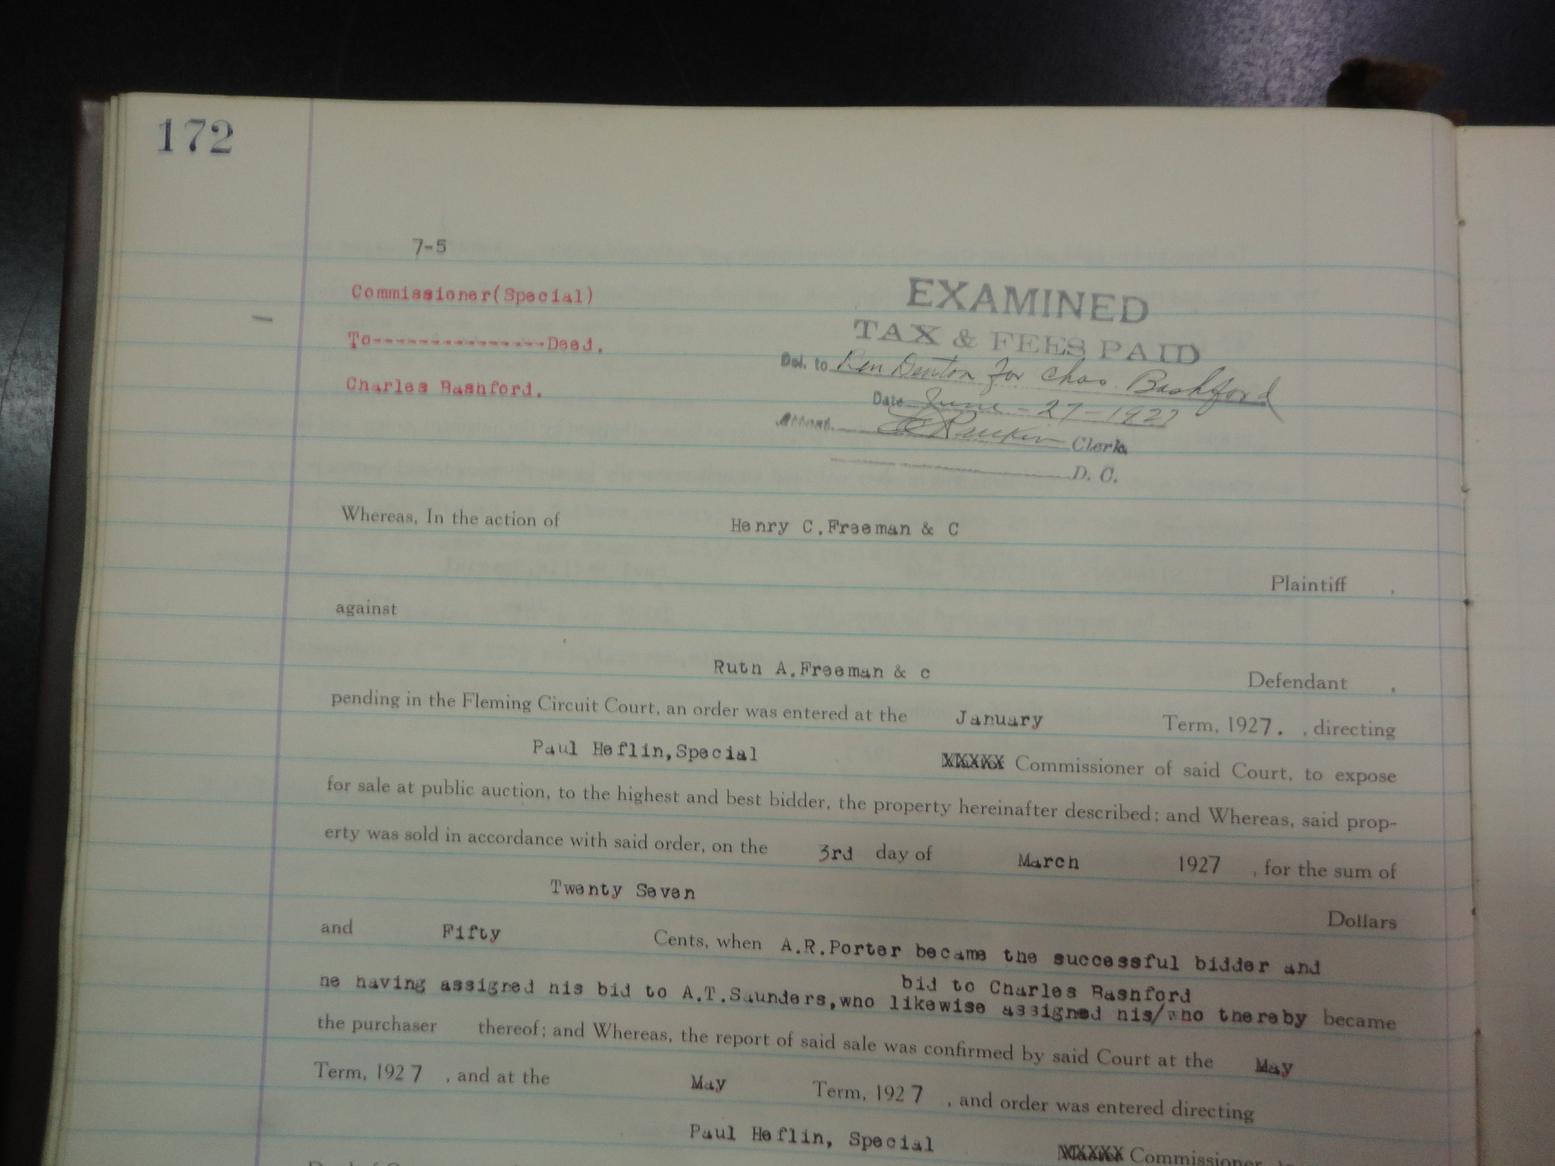 172
7-5
Commissioner(Special)
To---------------Deed.
Charles Bashford.
EXAMINED
TAX & FEES PAID
Del. to Ken Denton for Chas. Bashford
Date June - 27 - 1927
Attest. Clerk
D. C.
Whereas, In the action of Henry C.Freeman & C
Plaintiff ,
against
Ruth A.Freeman & c Defendant ,
pending in the Fleming Circuit Court, an order was entered at the January Term, 1927. , directing
Paul Heflin,Special XXXXX Commissioner of said Court, to expose
for sale at public auction, to the highest and best bidder, the property hereinafter described; and Whereas, said prop-
erty was sold in accordance with said order, on the 3rd day of March 1927 , for the sum of
Twenty Seven Dollars
and Fifty Cents, when A.R.Porter became the successful bidder and
bid to Charles Bashford
he having assigned his bid to A.T.Saunders,who likewise assigned his/who thereby became
the purchaser thereof; and Whereas, the report of said sale was confirmed by said Court at the May
Term, 1927 , and at the May Term, 1927 , and order was entered directing
Paul Heflin, Special XXXXX Commissioner